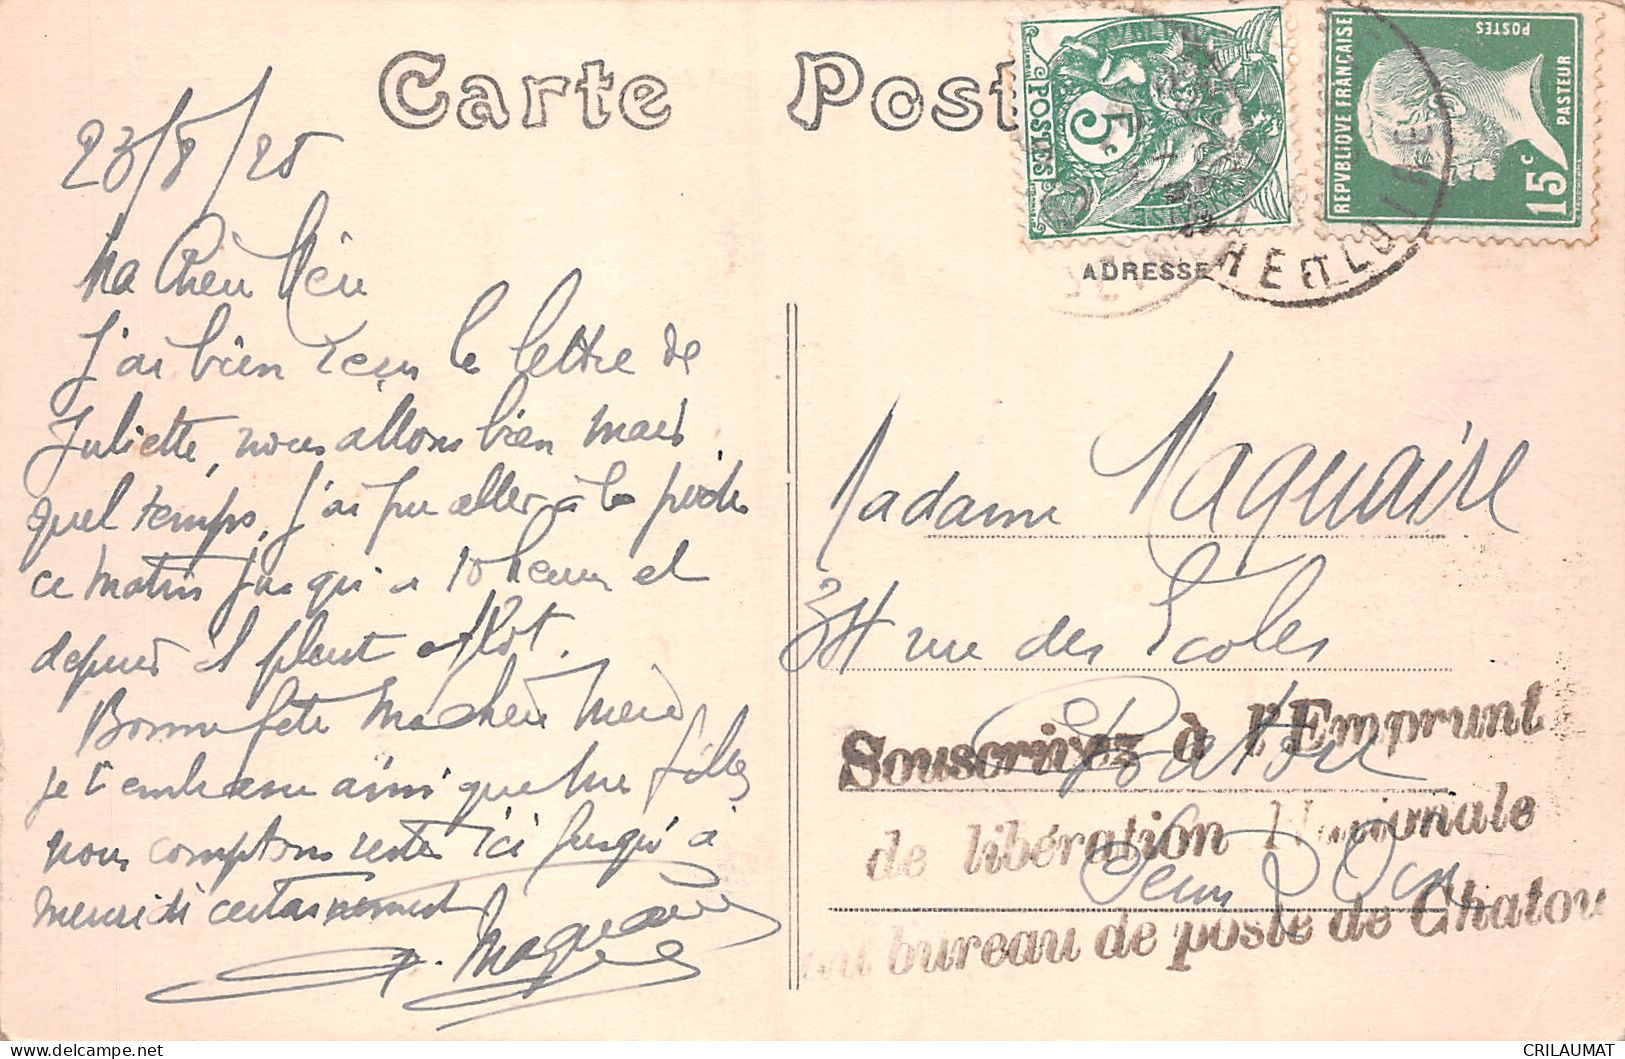 Carte Post
23/8/25
Ma Chère Mère
J'ai bien reçu la lettre de
Juliette, nous allons bien mais
quel temps, j'ai pu aller à la pêche
ce matin jusqu'à 10 heures et
depuis il pleut à flot.
Bonne fête Ma chère Mère
je t'embrasse ainsi que les filles
nous comptons rester ici jusqu'à
mercredi certainement
Maquaire
5c
POSTES
REPVBLIQVE FRANÇAISE
POSTES
PASTEUR
15c
ADRESSE
ET LOIR
Madame Maquaire
34 rue des Ecoles
Chatou
Seine & Oise
Souscrivez à l'Emprunt
de libération Nationale
au bureau de poste de Chatou
CRILAUMAT